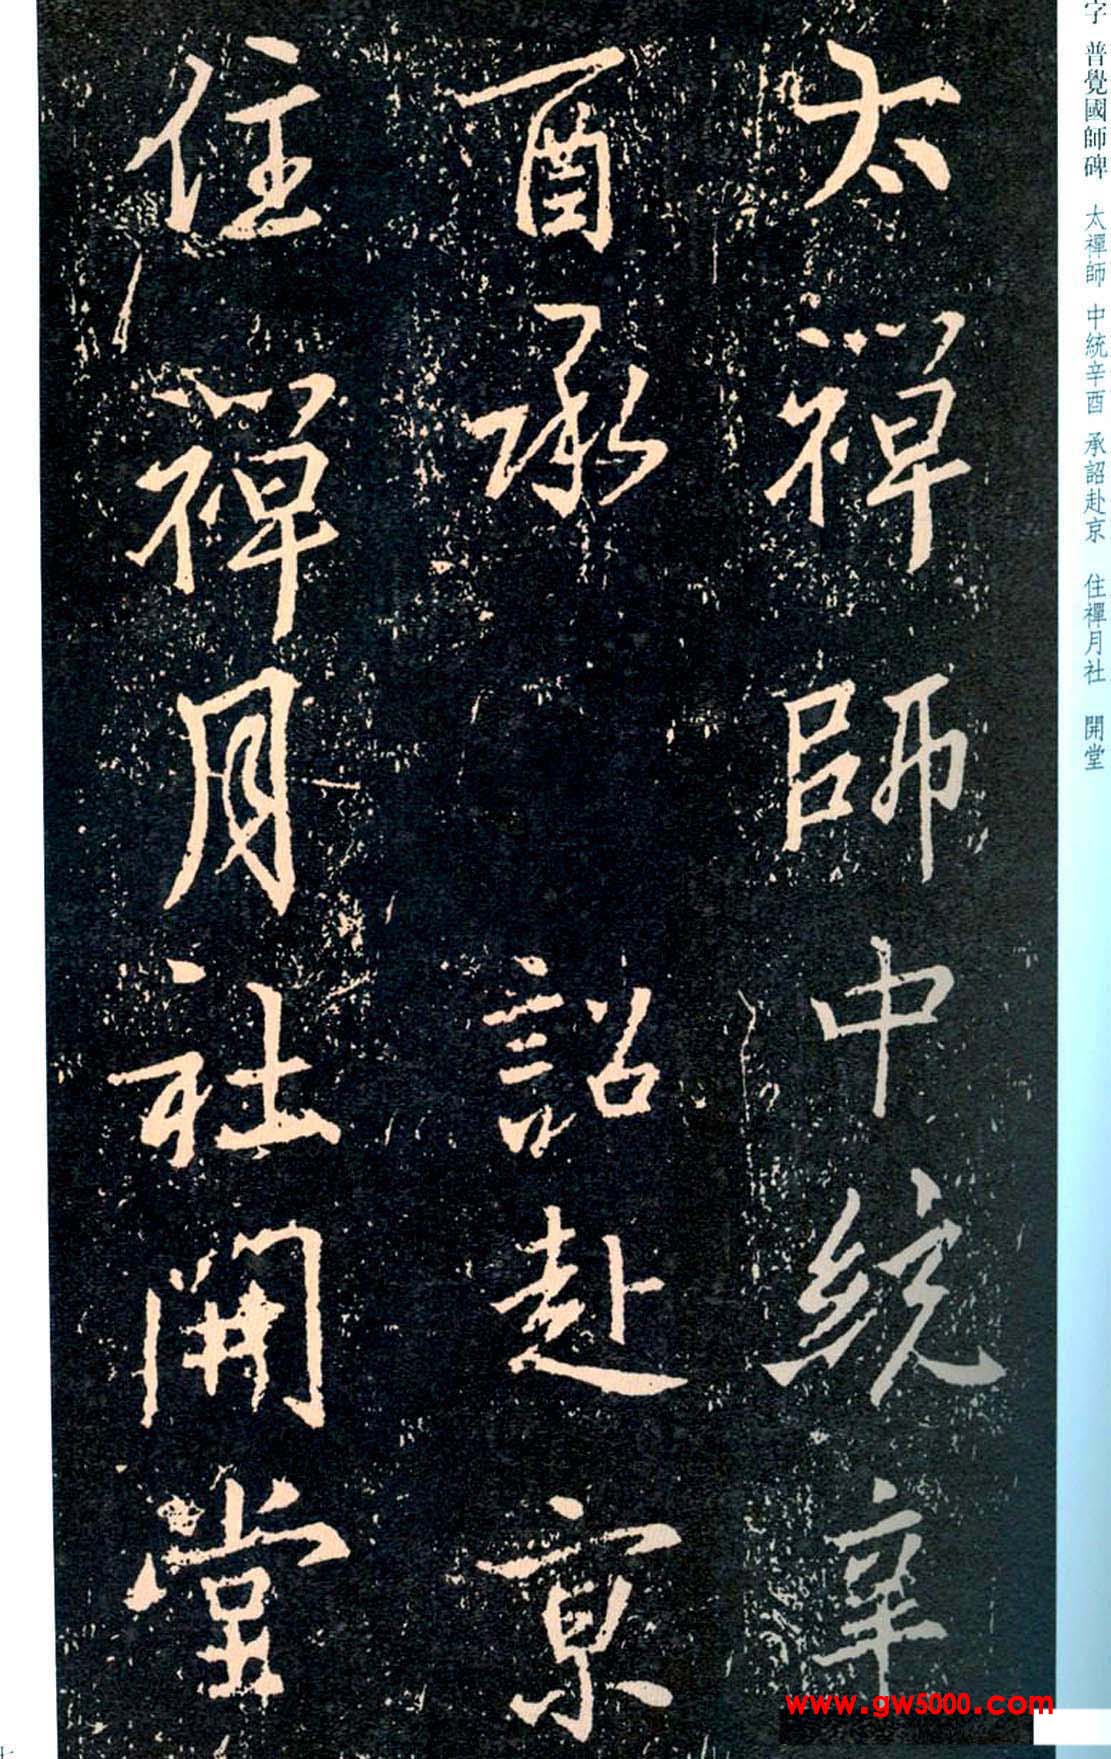 太禪師中統辛
酉承詔赴京
住禪月社開堂
字 普覺國師碑 太禪師 中統辛酉 承詔赴京 住禪月社 開堂
www.gw5000.com
七